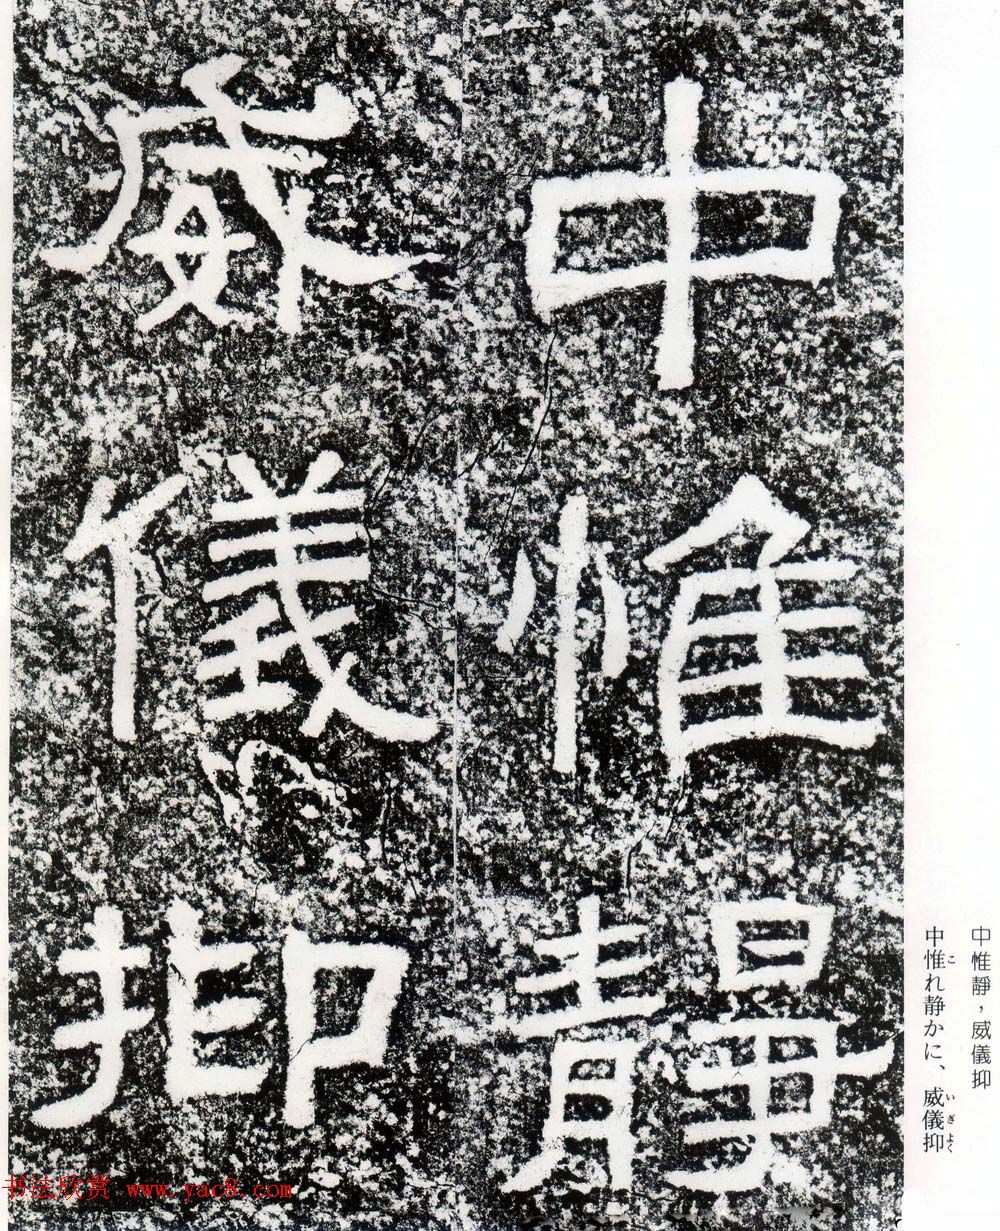 中惟靜
威儀抑
中惟靜，威儀抑
中惟れ静かに、威儀抑
こ
いぎよく
书法欣赏 www.yac8.com